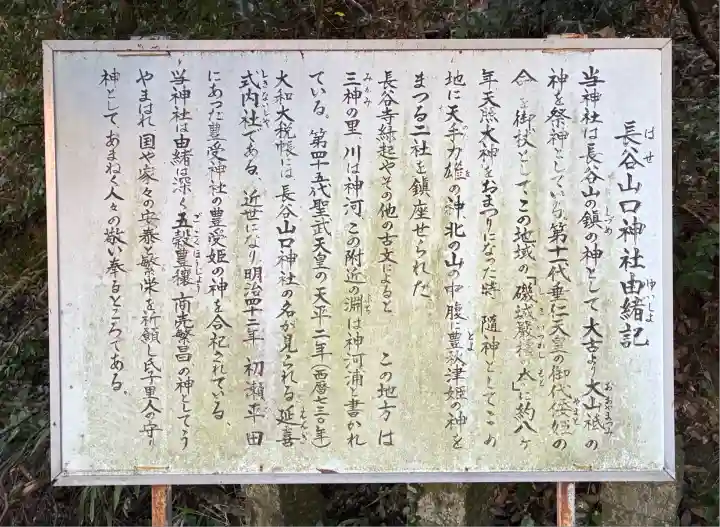 長谷山口神社由緒記
当神社は長谷山の鎮の神として太古より大山祗の
神を祭神としている。第十一代垂仁天皇の御代倭姫の
命を御杖としてこの地域の「磯城厳橿の本」に約八ヶ
年天照大神をおまつりになった時 随神としてこの
地に天手力雄の神、北の山の中腹に豊秋津姫の神を
まつる二社を鎮座せられた。
長谷寺縁起やその他の古文によると この地方は
三神の里 川は神河、この附近の淵は神河浦と書かれ
ている。第四十五代聖武天皇の天平二年(西暦七三〇年)
大和大税帳には長谷山口神社の名が見られる延喜
式内社である。近世になり明治四十二年 初瀬平田
にあった豊受神社の豊受姫の神を合祀されている。
当神社は由緒は深く五穀豊穣 商売繁昌の神としてう
やまはれ国や家々の安泰と繁栄を祈願し氏子里人の守り
神として、あまねく人々の敬い奉るところである。